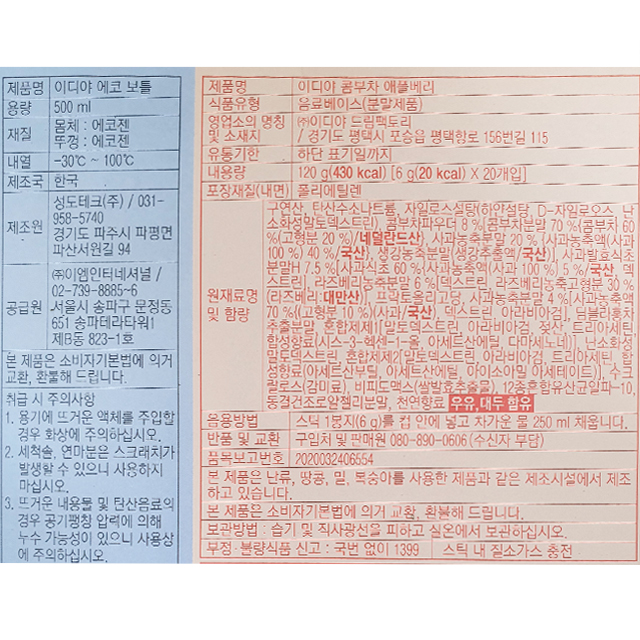 제품명 이디야 에코 보틀
용량 500 ml
재질 몸체 : 에코젠
뚜껑 : 에코젠
내열 -30℃ ~ 100℃
제조국 한국
제조원 성도테크(주) / 031-
958-5740
경기도 파주시 파평면
파산서원길 94
공급원 ㈜이엠인터네셔널 /
02-739-8885~6
서울시 송파구 문정동
651 송파테라타워1
제B동 823-1호
본 제품은 소비자기본법에 의거
교환, 환불해 드립니다.
취급 시 주의사항
1. 용기에 뜨거운 액체를 주입할
경우 화상에 주의하십시오.
2. 세척솔, 연마분은 스크래치가
발생할 수 있으니 사용하지
마십시오.
3. 뜨거운 내용물 및 탄산음료의
경우 공기팽창 압력에 의해
누수 가능성이 있으니 사용상
에 주의하십시오.
제품명 이디야 콤부차 애플베리
식품유형 음료베이스(분말제품)
영업소의 명칭 및 소재지 ㈜이디야 드림팩토리
/ 경기도 평택시 포승읍 평택항로 156번길 115
유통기한 하단 표기일까지
내용량 120 g(430 kcal) [6 g(20 kcal) X 20개입]
포장재질(내면) 폴리에틸렌
원재료명 및 함량 구연산, 탄산수소나트륨, 자일로스설탕(하얀설탕, D-자일로오스, 난
소화성말토덱스트린), 콤부차파우더 8 %[콤부차분말 70 %(콤부차 60
%(고형분 20 %)/네덜란드산), 사과농축분말 20 %(사과농축액(사과
100 %) 40 %/국산), 생강농축분말(생강추출액/국산)], 사과발효식초
분말H 7.5 %[사과식초 60 %(사과농축액(사과 100 %) 5 %/국산, 덱
스트린], 라즈베리농축분말 6 %[덱스트린, 라즈베리농축고형분 30 %
(라즈베리:대만산)], 프락토올리고당, 사과농축분말 4 %[사과농축액
70 %(고형분 10 %)(사과/국산), 덱스트린, 아라비아검], 딥블리홍차
추출분말, 혼합제제1[말토덱스트린, 아라비아검, 젖산, 트리아세틴,
합성향료(시스-3-헥센-1-올, 아세트산에틸, 다마세논)], 난소화성
말토덱스트린, 혼합제제2[말토덱스트린, 아라비아검, 트리아세틴, 합
성향료(아세트산부틸, 아세트산에틸, 이소아밀 아세테이트)], 수크
랄로스(감미료), 비피드맥스(쌀발효추출물), 12종혼합유산균일파-10,
동결건조로얄젤리분말, 천연향료 우유, 대두 함유
음용방법 스틱 1봉지(6 g)를 컵 안에 넣고 차가운 물 250 ml 채웁니다.
반품 및 교환 구입처 및 판매원 080-890-0606 (수신자 부담)
품목보고번호 2020032406554
본 제품은 난류, 땅콩, 밀, 복숭아를 사용한 제품과 같은 제조시설에서 제조
하고 있습니다.
본 제품은 소비자기본법에 의거 교환, 환불해 드립니다.
보관방법 : 습기 및 직사광선을 피하고 실온에서 보관하십시오.
부정·불량식품 신고 : 국번 없이 1399 스틱 내 질소가스 충전